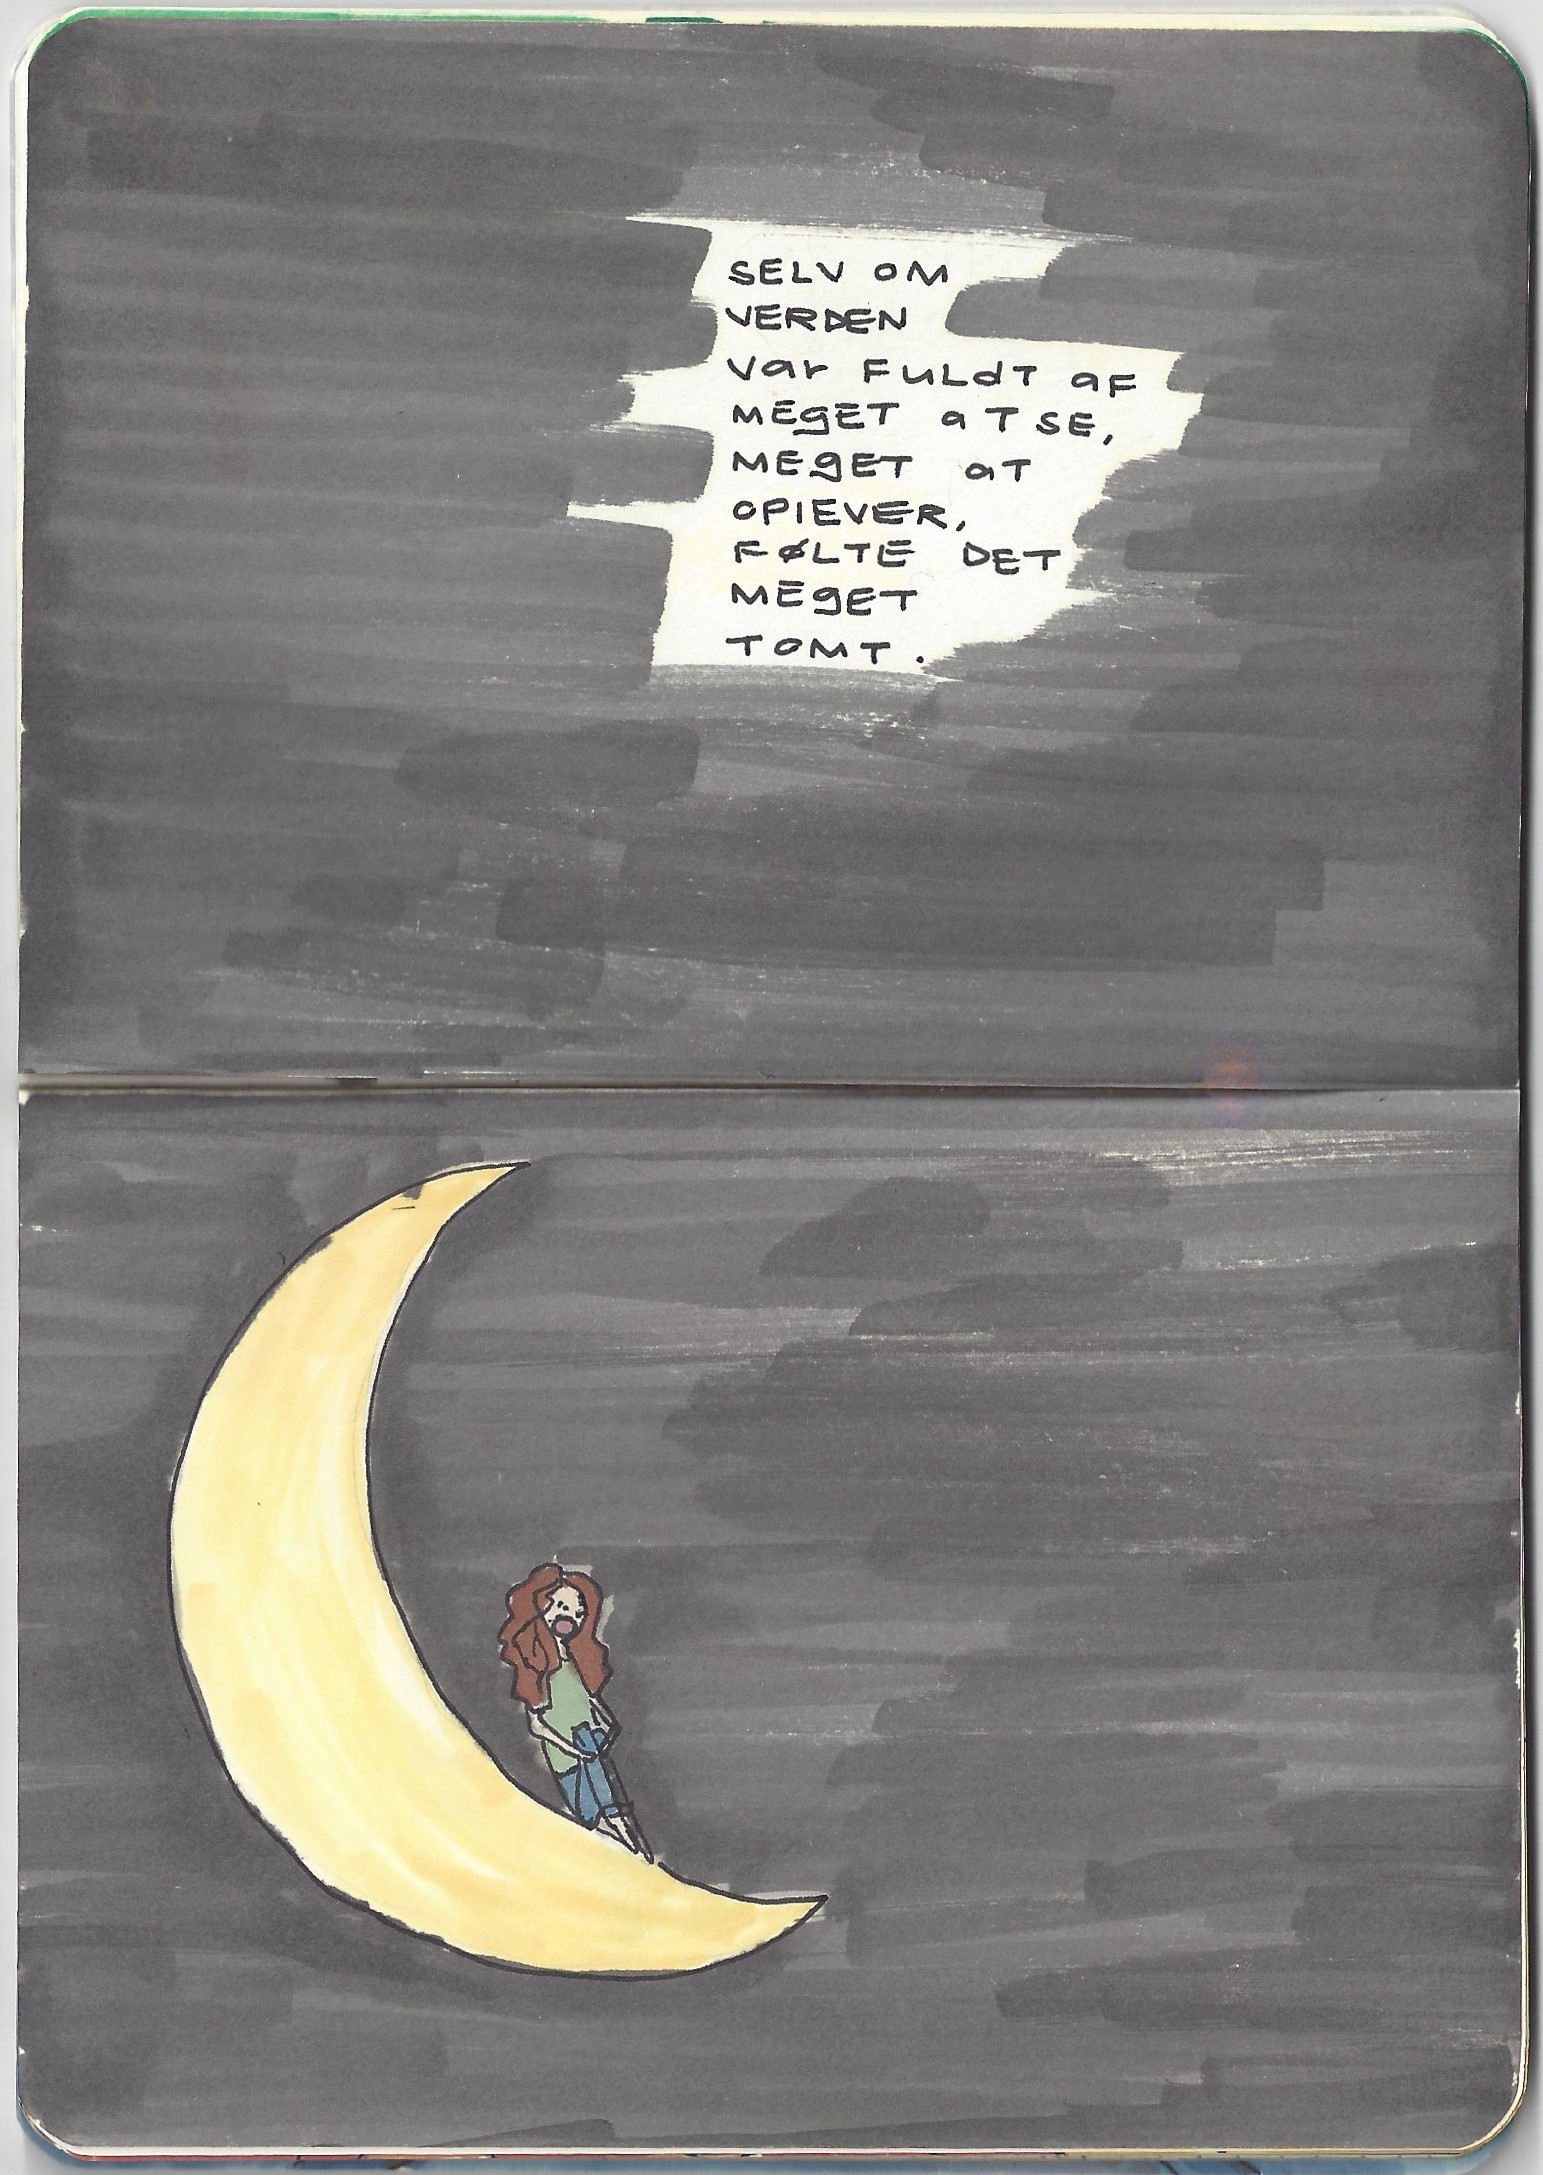 SELV OM
VERDEN
Var FULdT aF
MEgET aT SE,
MEgET aT
OPIEVER,
FØLTE DET
MEgET
TOMT.